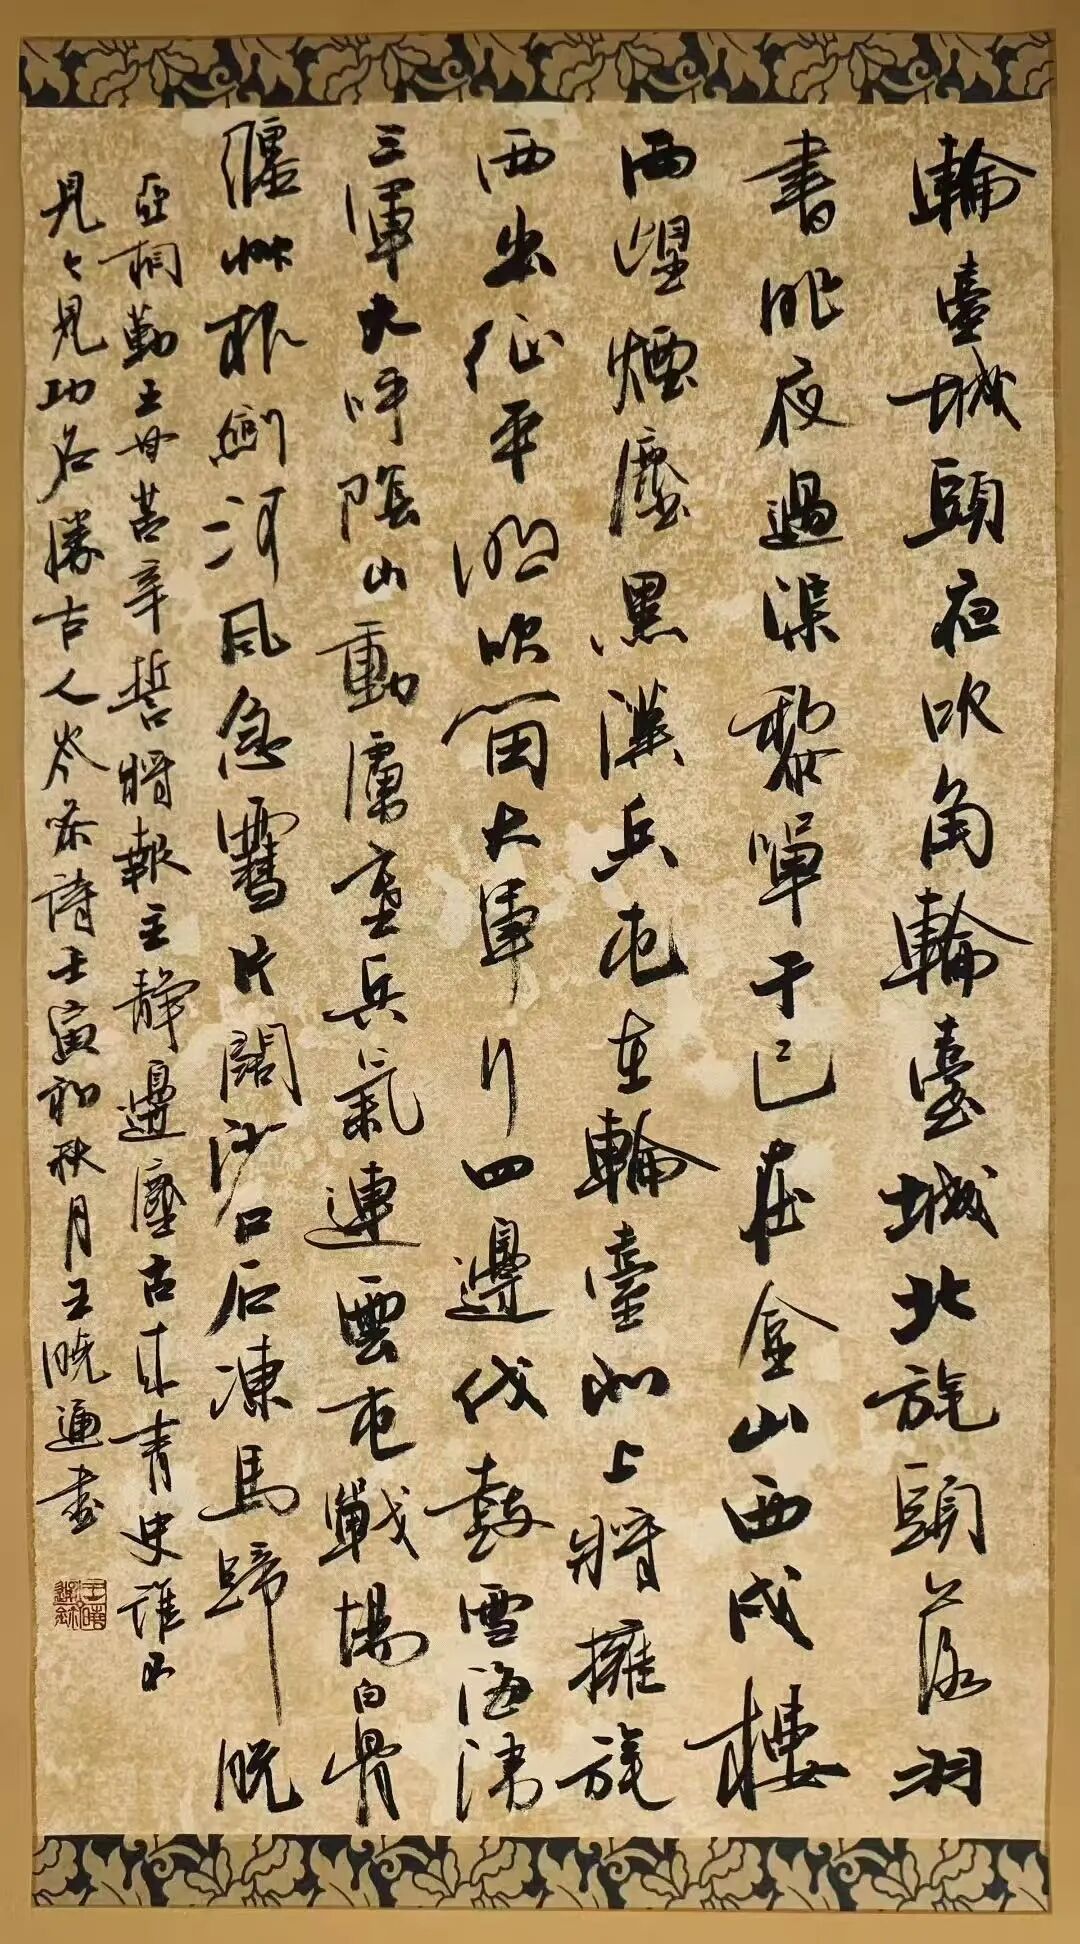 輪臺城頭夜吹角輪臺城北旄頭落羽
書昨夜過渠黎單于已在金山西戍樓
西望煙塵黑漢兵屯在輪臺北上將擁旄
西出征平明吹笛大軍行四邊伐鼓雪海湧
三軍大呼陰山動虜塞兵氣連雲屯戰場白骨
纏草根劍河風急雪片闊沙口石凍馬蹄脫
亞相勤王甘苦辛誓將報主靜邊塵古來青史誰不
見今見功名勝古人岑參詩壬寅初秋月王曉通書